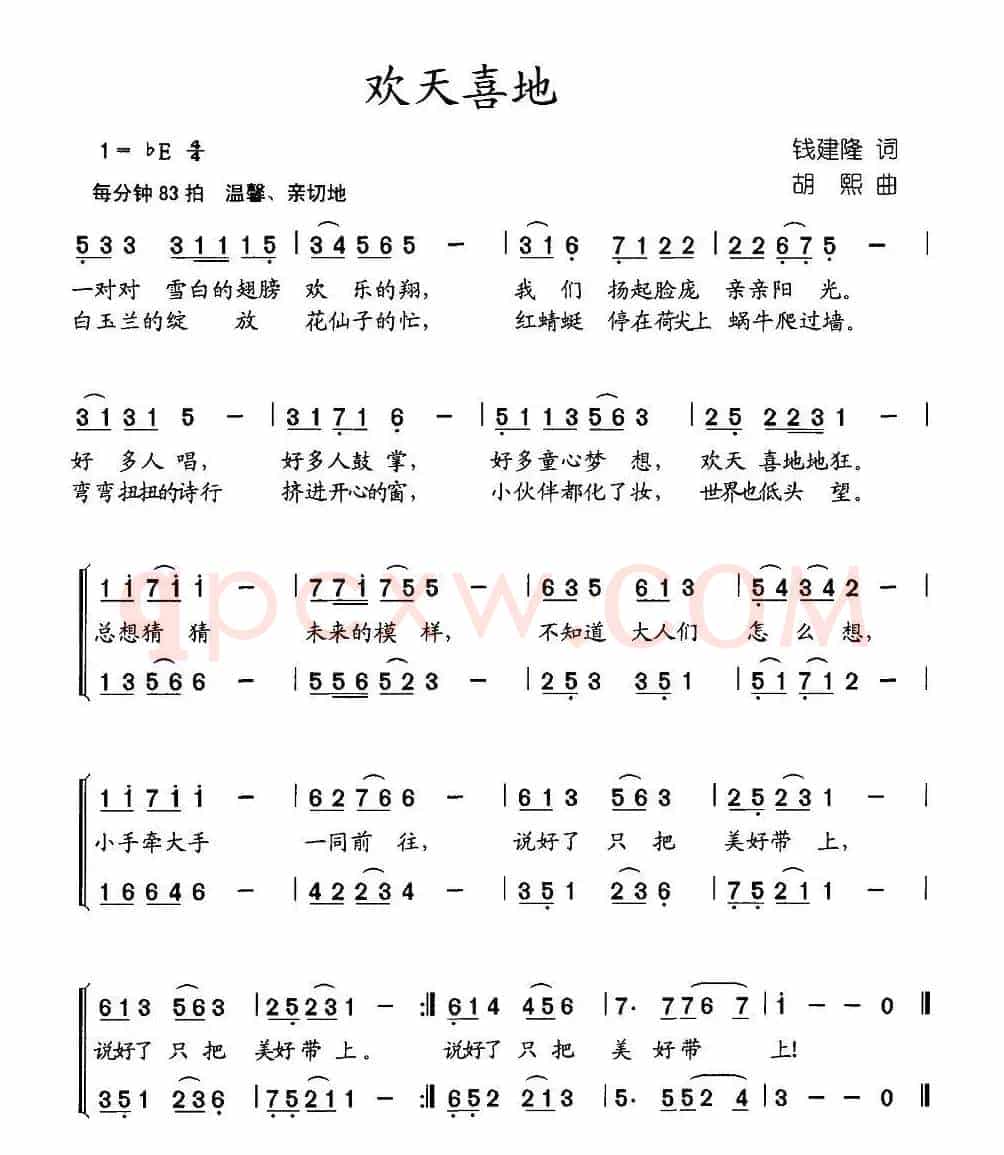 欢天喜地
1= ♭E 4/4
钱建隆 词
胡 熙 曲
每分钟 83 拍 温馨、亲切地
5 3 3 3 1 1 1 5 | 3 4 5 6 5 – | 3 1 6 7 1 2 2 | 2 2 6 7 5 – |
一对对 雪白的翅膀 欢 乐的翔, 我 们 扬起脸庞 亲亲阳 光。
白玉兰的绽 放 花仙子的忙, 红蜻蜓 停在荷尖上 蜗牛爬过墙。
3 1 3 1 5 – | 3 1 7 1 6 – | 5 1 1 3 5 6 3 | 2 5 2 2 3 1 – |
好 多人 唱, 好多人鼓 掌, 好多童心梦 想, 欢天 喜地地狂。
弯弯扭扭的诗行 挤进开心的窗, 小伙伴都化了妆, 世界也低头 望。
1 i 7 i i – | 7 7 i 7 5 5 – | 6 3 5 6 1 3 | 5 4 3 4 2 – |
总想猜 猜 未来的模 样, 不知道 大人们 怎 么 想,
1 3 5 6 6 – | 5 5 6 5 2 3 – | 2 5 3 3 5 1 | 5 1 7 1 2 – |
qpcxw.com
1 i 7 i i – | 6 2 7 6 6 – | 6 1 3 5 6 3 | 2 5 2 3 1 – |
小手牵大手 一同前 往, 说好了 只 把 美好带 上,
1 6 6 4 6 – | 4 2 2 3 4 – | 3 5 1 2 3 6 | 7 5 2 1 1 – |
6 1 3 5 6 3 | 2 5 2 3 1 – :‖ 6 1 4 4 5 6 | 7· 7 7 6 7 | i – – 0 ‖
说好了 只 把 美好带 上。 说好了 只 把 美 好带 上!
3 5 1 2 3 6 | 7 5 2 1 1 – :‖ 6 5 2 2 1 3 | 5· 5 5 2 4 | 3 – – 0 ‖